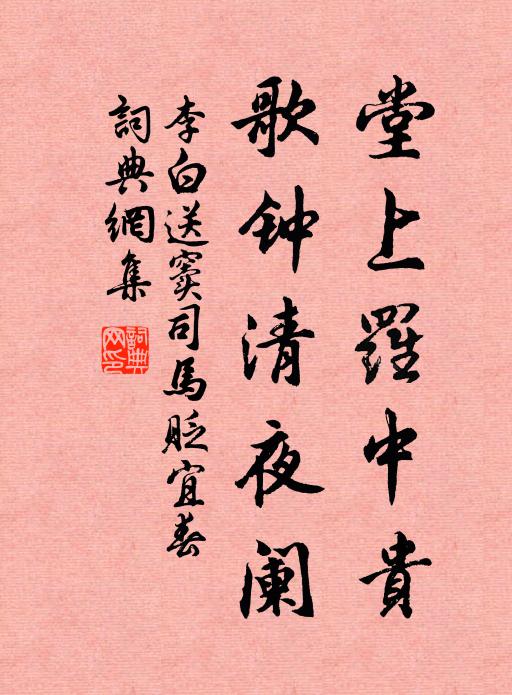 堂上羅中貴
歌钟清夜阑
李白送窦司馬貶宜春
詞典網集
詞典網印